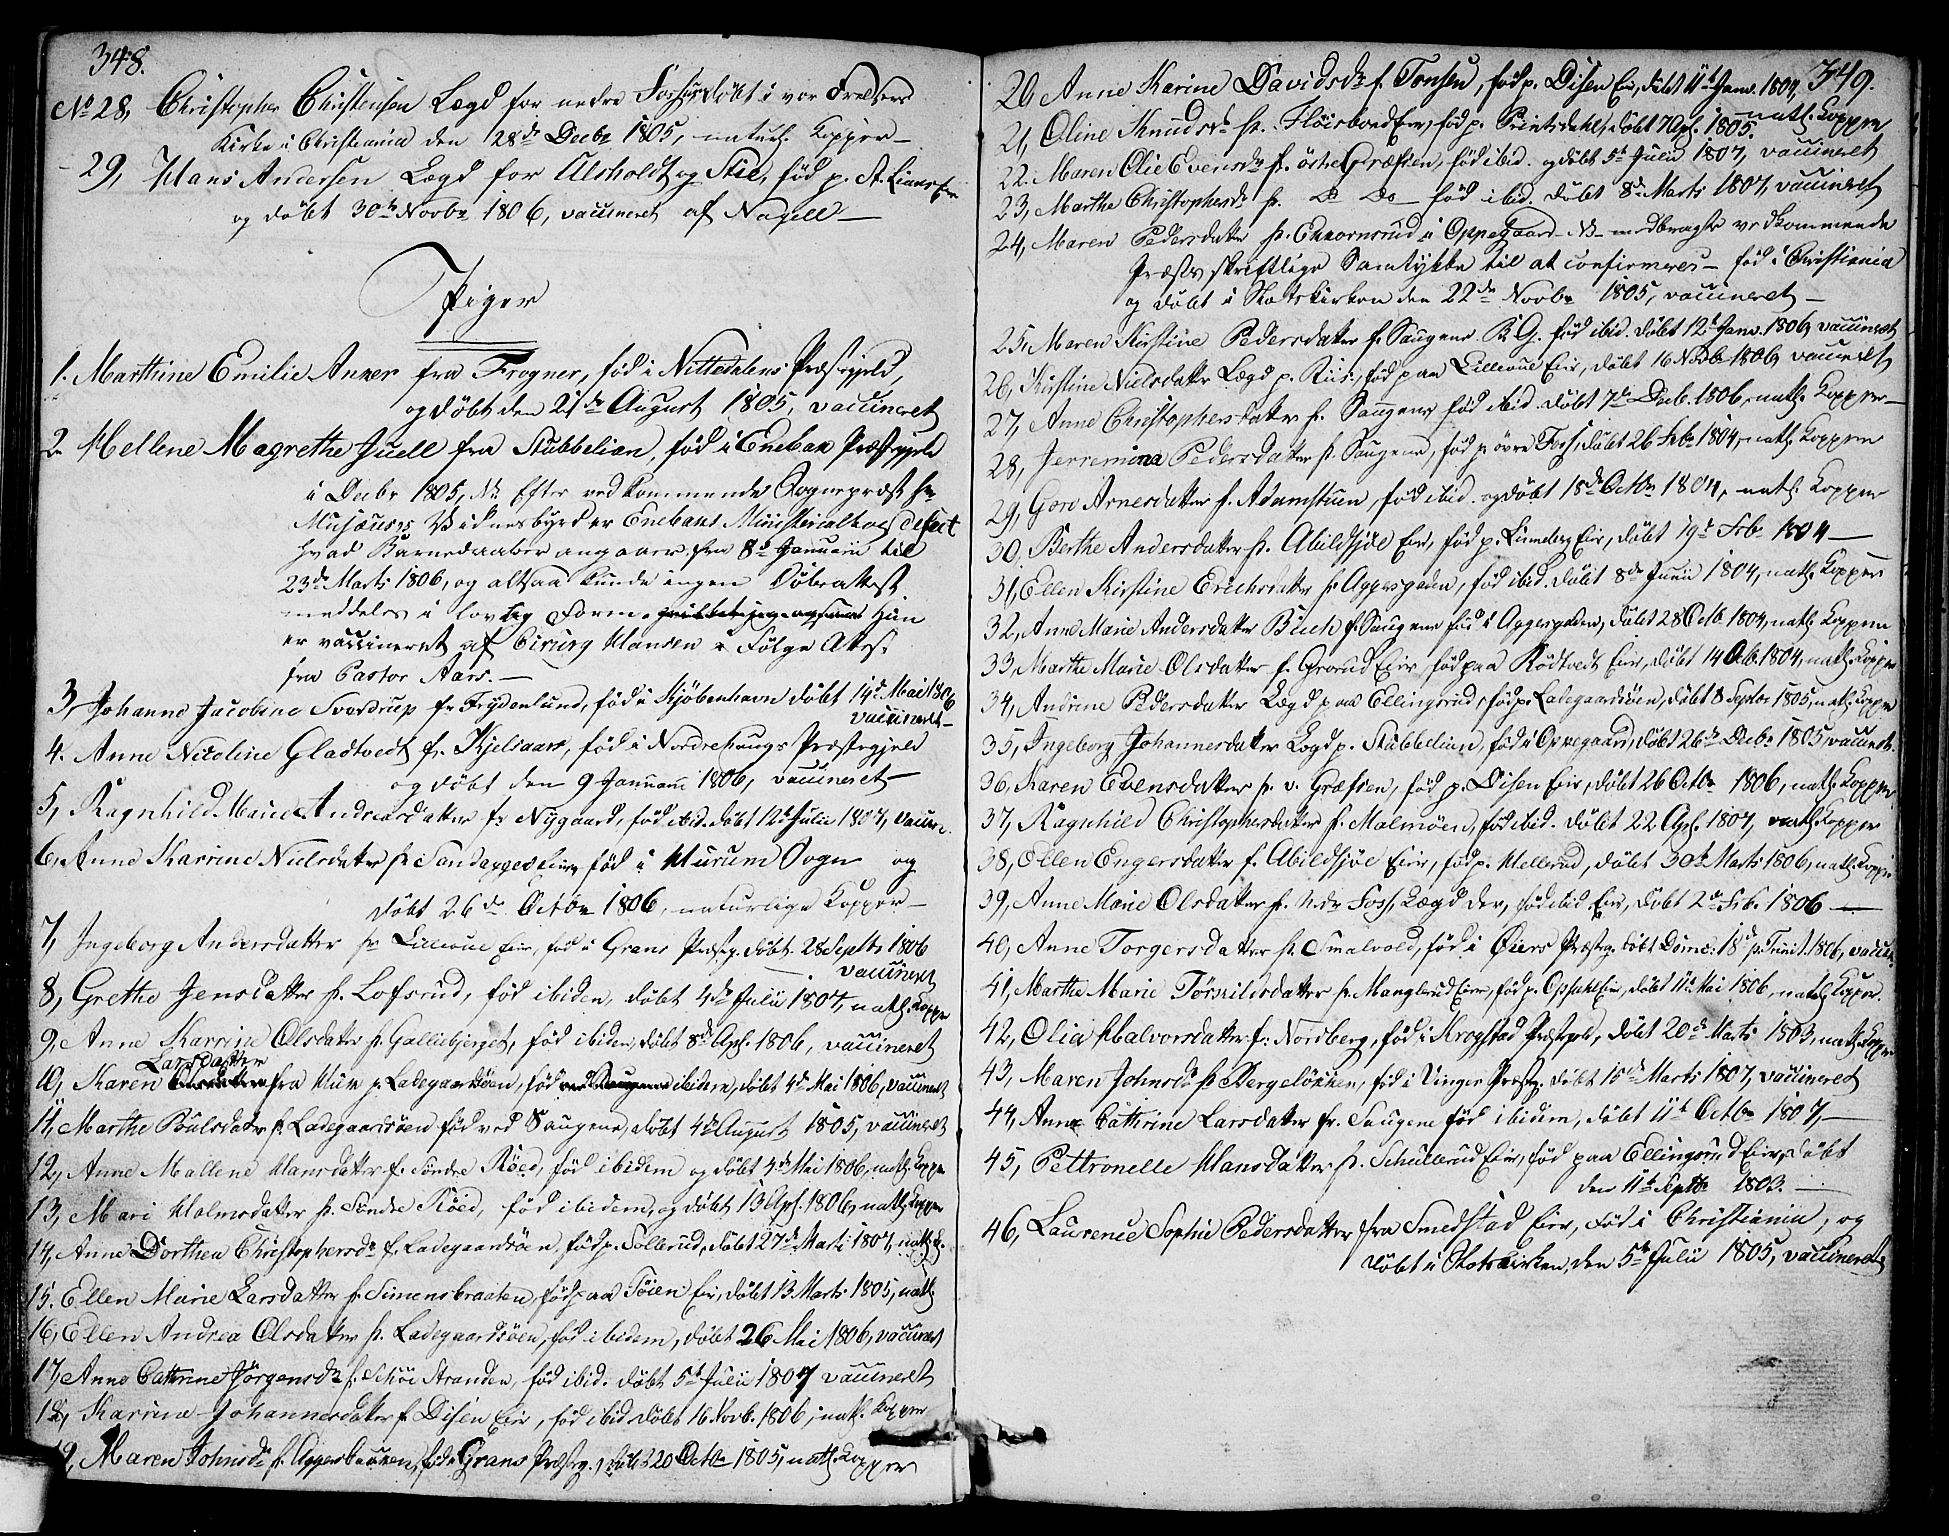 348.
No 28, Christopher Christensen Lægd for nedre Fossum døbt i vor Frelsers
Kirke i Christiania den 28de Decbr 1805, naturl. Kopper –
– 29, Hans Andersen Lægd for Ulsholdt og Stie, fød p. St. Linnes Eie
og døbt 30te Novbr 1806, vaccineret af Nagell –
Piger
1. Marthine Emilie Anker fra Frogner, fød i Nittedalens Præstegjeld,
og døbt den 21de August 1805, vaccineret
2 Hellene Magrethe Juell fra Stubbelien, fød i Enebak Præstegjeld
i Decbr 1805, NB. Efter vedkommende Sognepræst Hr
Musæus's Vidnesbyrd er Enebaks Ministerialbog defect
hvad Barnedaaber angaaer fra 8de Januarii til
23de Marts 1806, og altsaa kunde ingen Døbeattest
meddeles i lovlig Form. Hun
er vaccineret af Cirurg Hansen i Følge Attest
fra Pastor Aars. –
3, Johanne Jacobine Sverdrup fr Frydenlund, fød i Kjøbenhavn døbt 14de Mai 1806
vaccineret –
4. Anne Nicoline Gladtvedt fr. Kjelsaas, fød i Nordrehougs Præstegjeld
og døbt den 9 Januarii 1806, vaccineret –
5, Ragnhild Marie Andreasdatter fr Nygaard, fød ibid. døbt 12te Julii 1807, vaccin.
6, Anne Karrine Nielsdatter fr Sandagger Eie, fød i Hurum Sogn og
døbt 26de Octbr 1806, naturlige Kopper –
7, Ingeborg Andersdatter fr Lilleoue Eie, fød i Grans Præstg. døbt 28 Septbr 1806
vaccineret
8, Grethe Jensdatter fr. Lofsrud, fød ibidem, døbt 4de Julii 1807, natl. Kopper
9, Anne Karrine Olsdatter fr. Galliebjerget, fød ibidem, døbt 8de Apl. 1806, vaccineret
Larsdatter
10, Karen fra Huk p. Ladegaardsøen, fød ibidem, døbt 4de Mai 1806, vaccineret
11, Marthe Poulsdatter fr. Ladegaardsøen fød ved Saugene, døbt 4de August 1805, vaccineret
12, Anne Mallene Hansdatter fr. Søndre Røed, fød ibidem og døbt 4de Mai 1806, natl. Kopper
13, Mari Holmsdatter fr. Søndre Røed, fød ibidem, og døbt 13 Apl. 1806, natl. Kopper
14, Anne Dorthea Christophersdr fr. Ladegaardsøen, fød p. Sollerud, døbt 27de Marti 1807, natl. K.
15. Ellen Marie Larsdatter fr. Simensbraaten, fød paa Tøien Eie, døbt 13 Marts 1805, natl.
16, Ellen Andrea Olsdatter fr. Ladegaardsøen, fød ibidem, døbt 26 Mai 1806, vaccineret
17, Anne Cathrine Jørgensdr fr. Stranden, fød ibid. døbt 5te Julii 1807 vaccineret
18, Karrine Johannesdatter fr. Disen Eie, fød ibid døbt 16 Novb. 1806, natl. Kopper
19, Maren Johnsdr fr. Aggersbakken, fød i Grans Præstg. døbt 20 Octbr 1805, natl. Kopper
349.
20 Anne Karine Davidsdr fr. Tonsen, fød p. Disen Eie, døbt 11te Janv. 1804,
natl. Kopper
21, Oline Knudsdr fr. Fløisbond Eie, fød p. Prinsdahl, døbt 7 Apl. 1805.
22. Maren Olie Evensdr fr. østre Græfsen, fød ibid. og døbt 5te Julii 1807, vaccineret
23, Marthe Christophersdr fr. Do Do – fød ibid. døbt 8de Marts 1807, vaccineret
24, Maren Pedersdatter fr. Ekkornsrud i Oppegaard – NB – medbragte vedkommende
Præstes skriftlige Samtykke til at confirmeres – fød i Christiania
og døbt i Slotskirken den 22de Novbr 1805, vaccineret –
25, Maren Kirstine Pedersdatter fr. Saugene B. G. fød ibid. døbt 12te Janv. 1806, vaccineret
26, Kirstine Nielsdatter Lægd p. Riis, fød paa Lilleoue Eie, døbt 16 Novb 1806, vaccineret
27, Anne Christophersdatter fr. Saugene, fød ibid. døbt 7de Decb. 1806, natl. Kopper –
28, Jerremina Pedersdatter fr. Saugene, fød p. øvre Foss, døbt 26 Febr 1804, natl. Kopper
29, Goro Arnesdatter fr. Adamstuen, fød ibid. og døbt 18de Octbr 1804, natl. Kopper
30, Berthe Andersdatter fr. Abildsjøe Eie, fød p. Linneberg Eie, døbt 19de Feb. 1804 –
31, Ellen Kirstine Erichsdatter fr. Aggersgaden, fød ibid. døbt 8de Junii 1804, natl. Kopper
32, Anne Marie Andersdatter Buch fr. Saugene fød i Aggersgaden, døbt 28 Octb 1804, natl. Kopper
33, Marthe Marie Olsdatter fr. Grorud Eie fød paa Rødtvedt Eie, døbt 14 Octb. 1804, natl. Kopper
34, Andrine Pedersdatter Lægd paa Ellingsrud, fød p. Ladegaardsøen, døbt 8 Septbr 1805, natl. Kopper
35, Ingeborg Johannesdatter Lægd p. Stubbelien, fød i Oppegaard, døbt 26de Decbr 1805, vaccineret.
36, Karen Evensdatter fr. v. Græfsen, fød p. Disen Eie, døbt 26 Octbr 1806, natl. Kopper
37, Ragnhild Christophersdatter fr. Malmøen, fød ibid. døbt 22 Apl. 1807, natl. Kopper
38, Ellen Engersdatter fr. Abildsjøe Eie, fød p. Hellerud, døbt 30te Marts 1806, natl. Kopper
39, Anne Marie Olsdatter fr. Ndr Foss, Lægd der, fød ibid Eie, døbt 2de Feb. 1806 –
40, Anne Torgersdatter fr. Smalvold, fød i Øiers Præstg. døbt Domc. 18de p. Trinit. 1806, vaccin.
41, Marthe Marie Tørrilsdatter fr. Manglerud Eie, fød p. Opsahl Eie, døbt 11te Mai 1806, natl. Kopper.
42, Olia Halvorsdatter fr. Nordberg, fød i Krogstad Præstgld, døbt 20de Marts 1803, natl. Kopper
43, Maren Johnsdr fr Bergeløkken, fød i Vinger Præstg. døbt 15de Marts 1807, vaccineret
44, Anne Cathrine Larsdatter fr. Saugene fød ibidem, døbt 11te Octbr 1807, –
45, Pettronelle Hansdatter fr. Skullerud Eie, fød paa Ellingsrud Eie, døbt
den 11te Septbr 1803. –
46, Laurence Sophie Pedersdatter fra Smedstad Eie, fød i Christiania, og
døbt i Slotskirken, den 5te Julii 1805, vaccineret